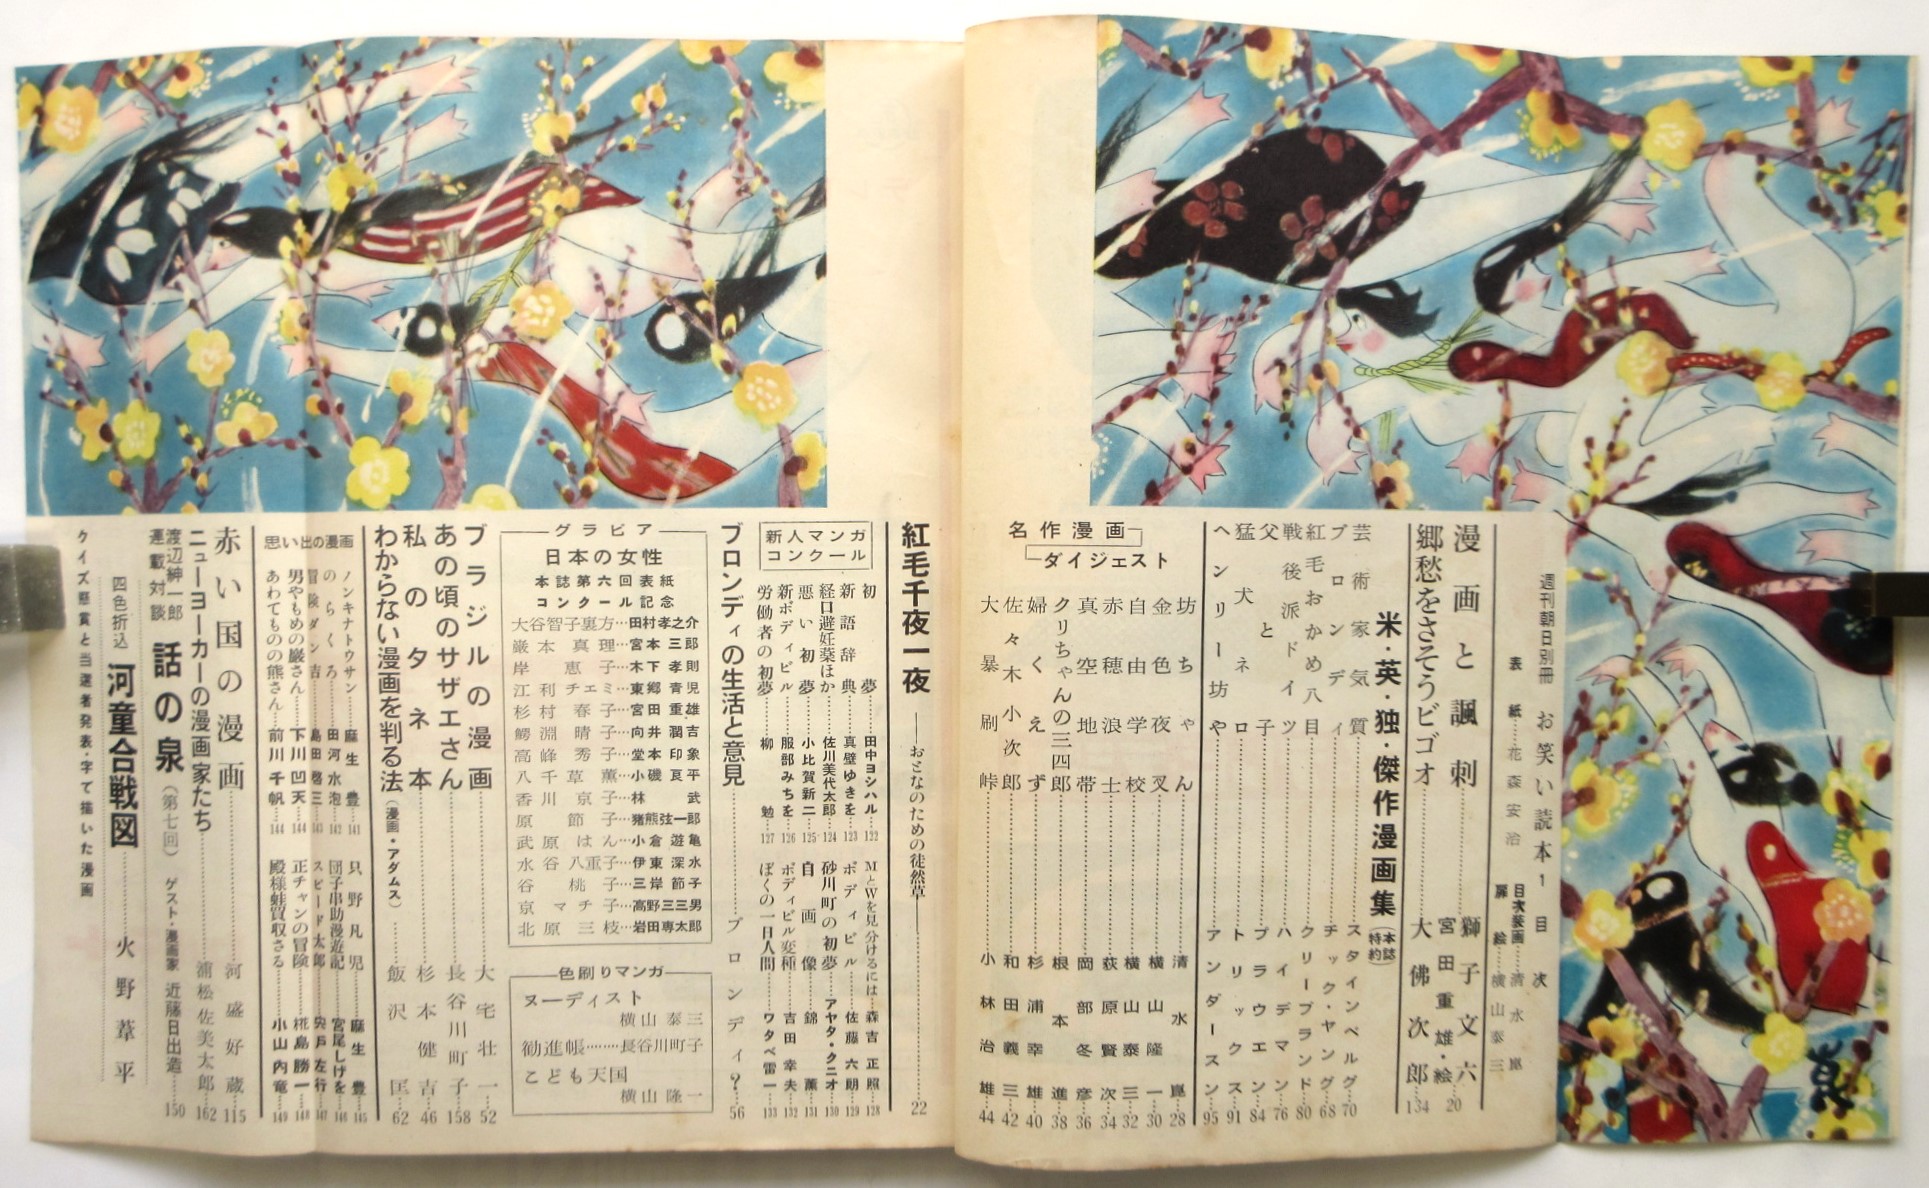 週刊朝日別冊 お笑い読本1 目次
表紙……花森安治
目次装画……清水崑
扉絵……横山泰三
漫画と諷刺……獅子文六 20
宮田重雄・絵
郷愁をさそうビゴオ……大佛次郎 134
米・英・独・傑作漫画集(本誌特約)
芸術家気質……スタインベルグ 70
ブロンディ……チック・ヤング 68
紅毛おかめ八目……クリーブランド 80
戦後派ドイツ……ハイデマン 76
父と子……プラウエン 84
猛犬ネロ……トリックス 91
ヘンリー坊や……アンダースン 95
名作漫画ダイジェスト
坊ちゃん……清水崑 28
金色夜叉……横山隆一 30
自由学校……横山泰三 32
赤穂浪士……荻原賢次 34
真空地帯……岡部冬彦 36
クリちゃんの三四郎……根本進 38
婦くえず……杉浦幸雄 40
佐々木小次郎……和田義三 42
大暴刷峠……小林治雄 44
紅毛千夜一夜――おとなのための徒然草―― 22
新人マンガコンクール
初夢……田中ヨシハル 122
新語辞典……真壁ゆきを 123
経口避妊薬ほか……佐川美代太郎 124
悪い初夢……小比賀新二 125
新ボディビル……服部みちを 126
労働者の初夢……柳勉 127
MとWを見分けるには……森吉正照 128
ボディビル……佐藤六朗 129
砂川町の初夢……アヤタ・クニオ 130
自画像……錦薫 131
ボディビル変種……吉田幸夫 132
ぼくの一日人間……ワタベ雷一 133
ブロンディの生活と意見……ブロンディ? 56
グラビア
日本の女性
本誌第六回表紙
コンクール記念
大谷智子裏方…田村孝之介
厳本真理…宮本三郎
岸恵子…木下孝則
江利チエミ…東郷青児
杉村春子…宮田重雄
鰐淵晴子…向井潤吉
高峰秀子…堂本印象
八千草薫…小磯良平
香川京子…林武
原節子…猪熊弦一郎
武原はん…小倉遊亀
水谷八重子…伊東深水
谷桃子…三岸節子
京マチ子…高野三三男
北原三枝…岩田専太郎
色刷りマンガ
ヌーディスト
横山泰三
勧進帳……長谷川町子
こども天国
横山隆一
ブラジルの漫画……大宅壮一 52
あの頃のサザエさん……長谷川町子 158
私のタネ本……杉本健吉 46
わからない漫画を判る法(漫画・アダムス)……飯沢匡 62
思い出の漫画
ノンキナトウサン……麻生豊 141
のらくろ……田河水泡 142
冒険ダン吉……島田啓三 143
男やもめの巌さん……下川凹天 144
あわてものの熊さん……前川千帆 144
只野凡児……麻生豊 145
団子串助漫遊記……宮尾しげを 146
スピード太郎……宍戸左行 147
正チャンの冒険……椛島勝一 148
殿様蛙買収さる……小山内竜 149
赤い国の漫画……河盛好蔵 115
ニューヨーカーの漫画家たち……浦松佐美太郎 162
渡辺紳一郎連載対談 話の泉(第七回) ゲスト・漫画家 近藤日出造…… 150
四色折込 河童合戦図……火野葦平
クイズ懸賞と当選者発表・字で描いた漫画
崑